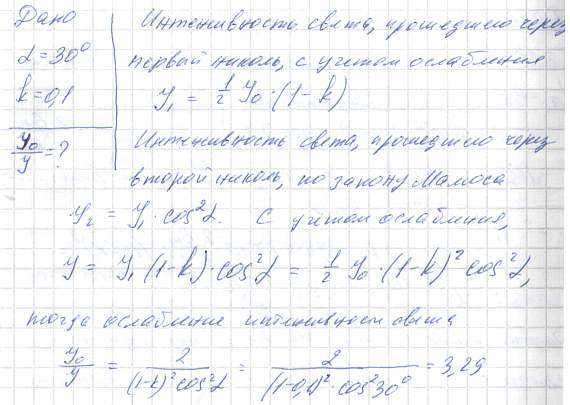 Дано
α = 30°
k = 0,1
y₀/y = ?
Интенсивность света, прошедшего через
первый николь, с учетом ослабления
y₁ = 1/2 y₀ · (1-k)
Интенсивность света, прошедшего через
второй николь, по закону Малюса
y₂ = y₁ · cos²α. С учётом ослабления,
y = y₁ (1-k) · cos²α = 1/2 y₀ · (1-k)² cos²α,
тогда ослабление интенсивности света
y₀/y = 2/((1-k)² cos²α) = 2/((1-0,1)² · cos²30°) = 3,29